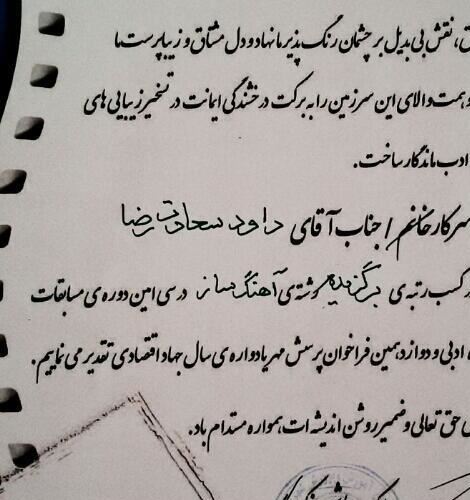 ، نقش بی بدیل بر چشمان رنگ پذیر ما نهاد و دل مشتاق و زیباپرست ما
همت والای این سرزمین را به برکت درخشندگی ایمانت در تسخیر زیبایی های
ادب ماندگار ساخت.
سرکار خانم / جناب آقای داود سعادت رضا
کسب رتبه ی برگزیده رشته ی آهنگ ساز در سی امین دوره ی مسابقات
ادبی و دوازدهمین فراخوان پرسش مهر یادواره ی سال جهاد اقتصادی تقدیر می نماییم.
حق تعالی و ضمیر روشن اندیشه ات همواره مستدام باد.